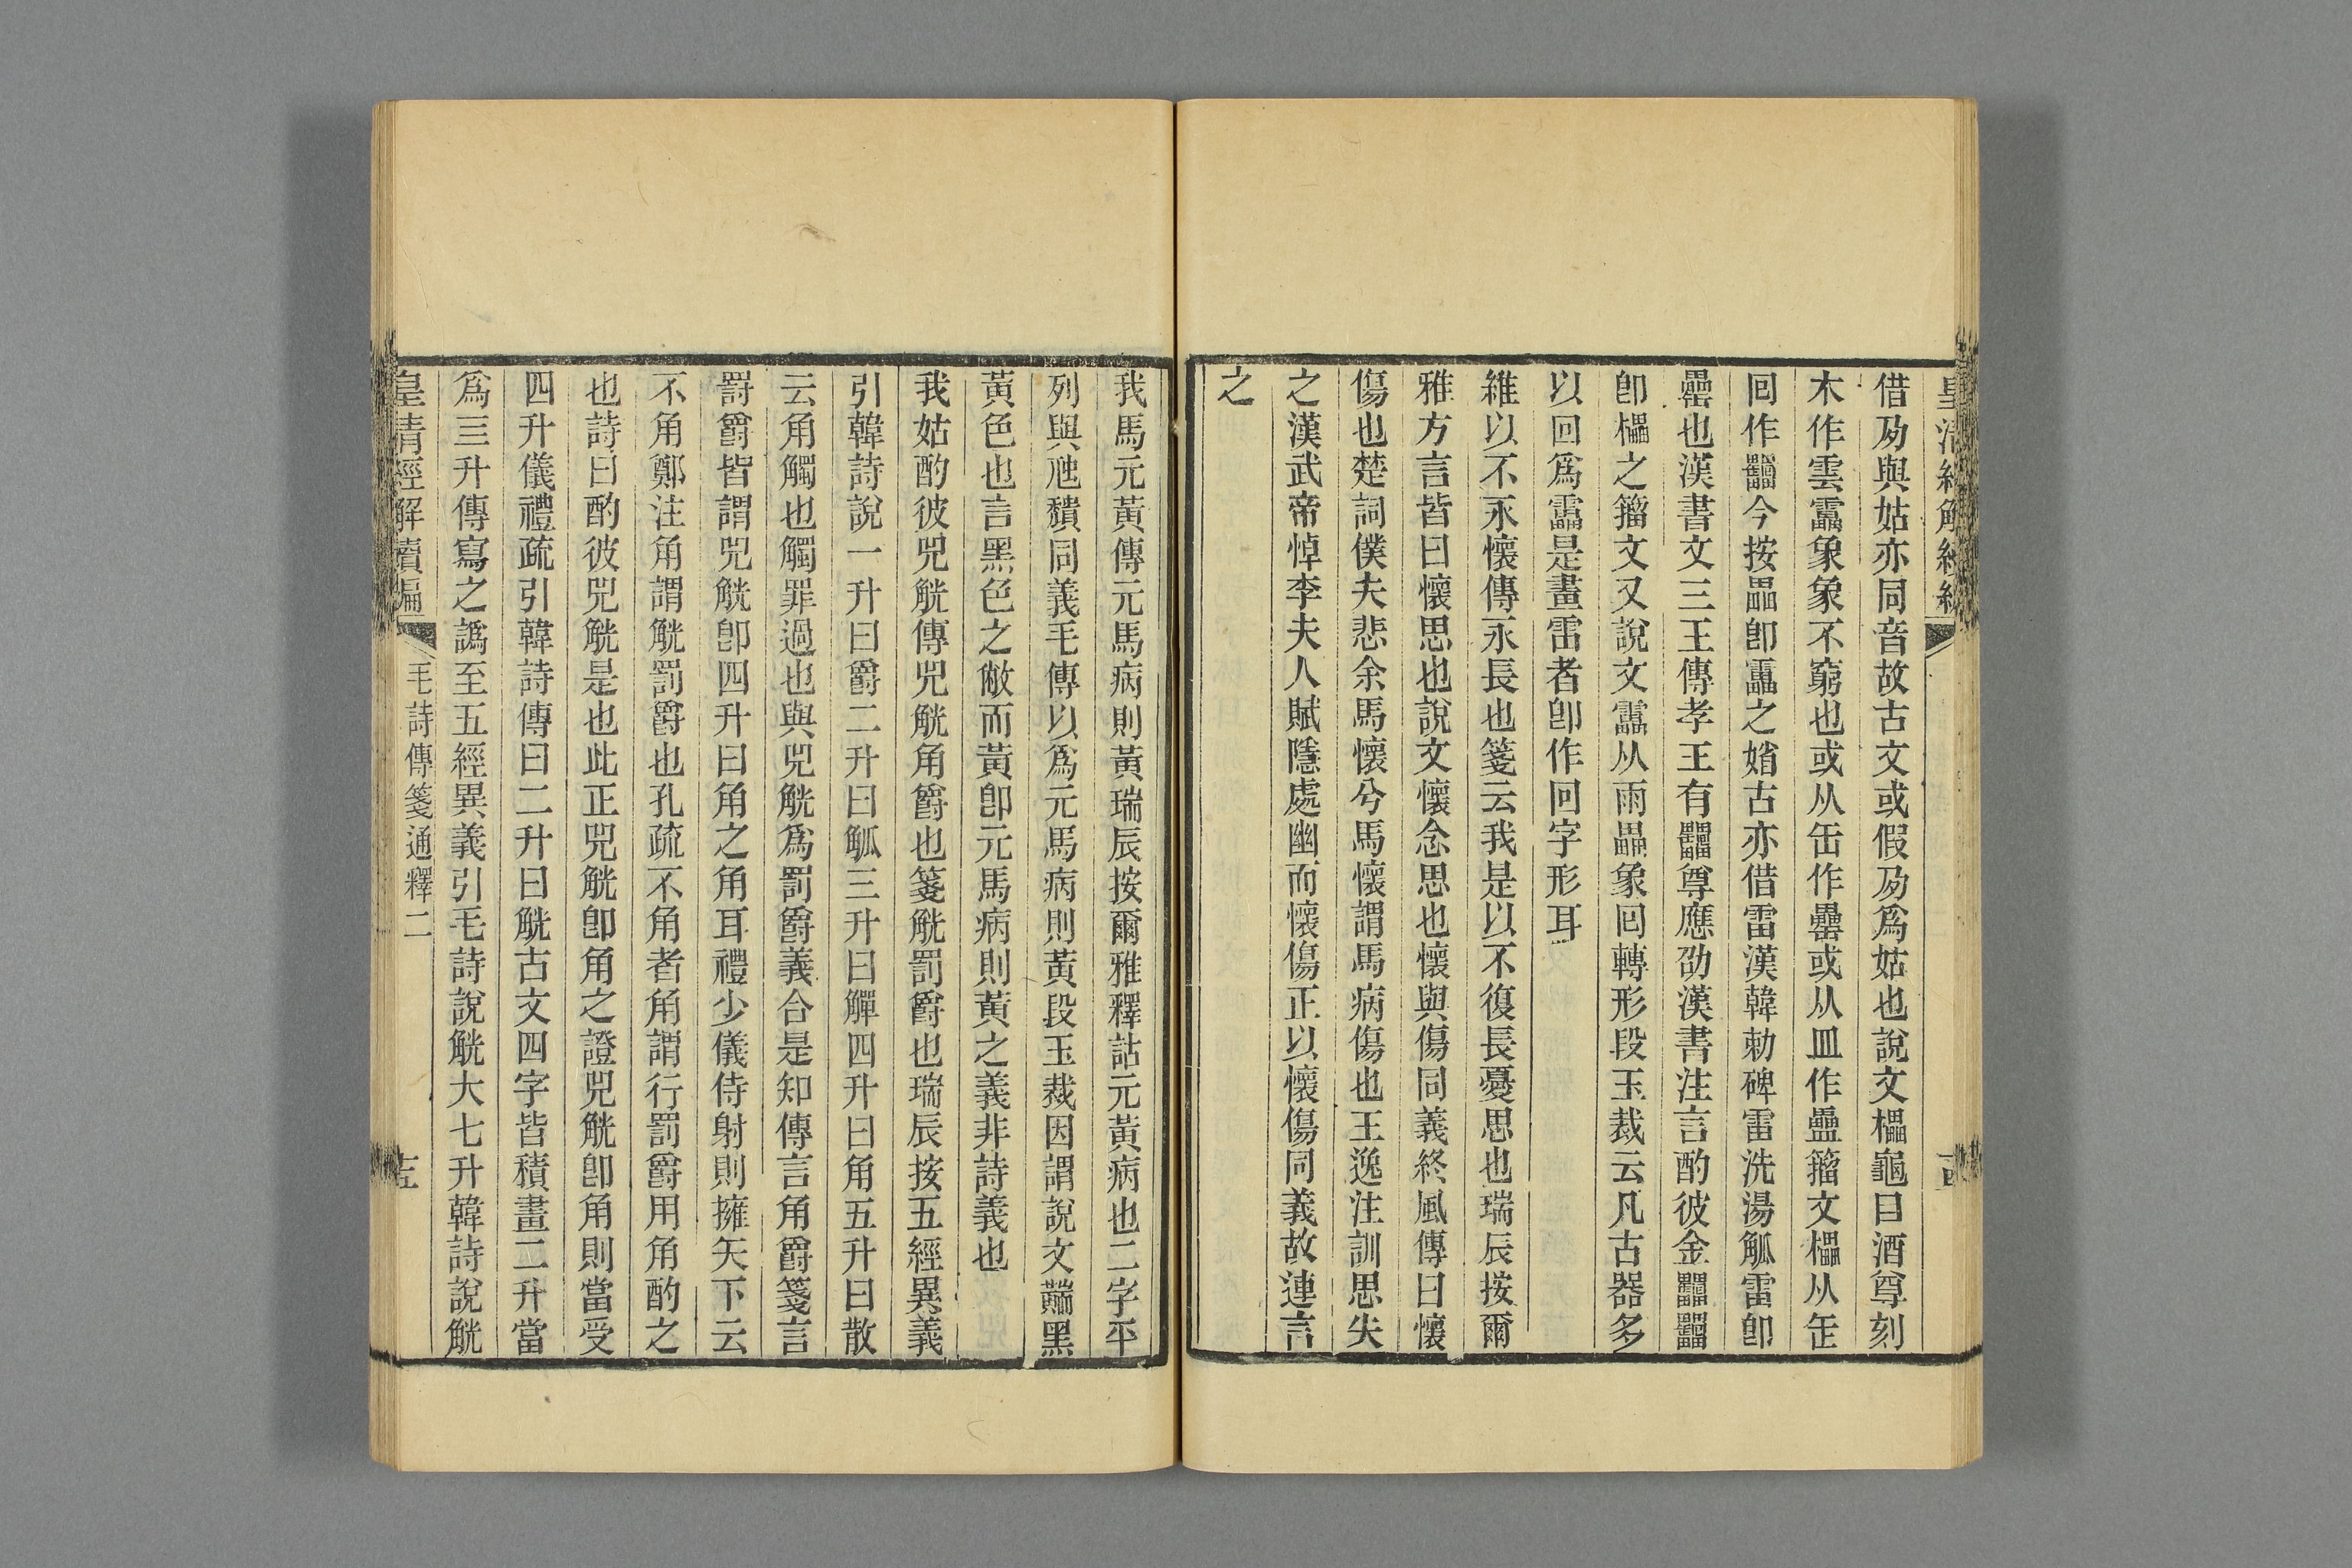 借夃與姑亦同音故古文或假夃爲姑也說文櫑龜目酒尊刻
木作雲靁象象不窮也或从缶作罍或从皿作𥃇籀文櫑从缶
回作𤮚今按畾卽靁之媘古亦借雷漢韓勑碑雷洗湯觚雷卽
罍也漢書文三王傳孝王有𤮚尊應劭漢書注言酌彼金𤮚𤮚
卽櫑之籀文又說文靁从雨畾象回轉形段玉裁云凡古器多
以回爲靁是畫雷者卽作回字形耳
維以不永懷傳永長也箋云我是以不復長憂思也瑞辰按爾
雅方言皆曰懷思也說文懷念思也懷與傷同義終風傳曰懷
傷也楚詞僕夫悲余馬懷兮馬懷謂馬病傷也王逸注訓思失
之漢武帝悼李夫人賦隱處幽而懷傷正以懷傷同義故連言
之
我馬元黃傳元馬病則黃瑞辰按爾雅釋詁元黃病也二字平
列與虺穨同義毛傳以爲元馬病則黃段玉裁因謂說文黗黑
黃色也言黑色之敝而黃卽元馬病則黃之義非詩義也
我姑酌彼兕觥傳兕觥角爵也箋觥罰爵也瑞辰按五經異義
引韓詩說一升曰爵二升曰觚三升曰觶四升曰角五升曰散
云角觸也觸罪過也與兕觥爲罰爵義合是知傳言角爵箋言
罰爵皆謂兕觥卽四升曰角之角耳禮少儀侍射則擁矢下云
不角鄭注角謂觥罰爵也孔疏不角者角謂行罰爵用角酌之
也詩曰酌彼兕觥是也此正兕觥卽角之證兕觥卽角則當受
四升儀禮疏引韓詩傳曰二升曰觥古文四字皆積畫二升當
爲三升傳寫之譌至五經異義引毛詩說觥大七升韓詩說觥
皇清經解續編
毛詩傳箋通釋二